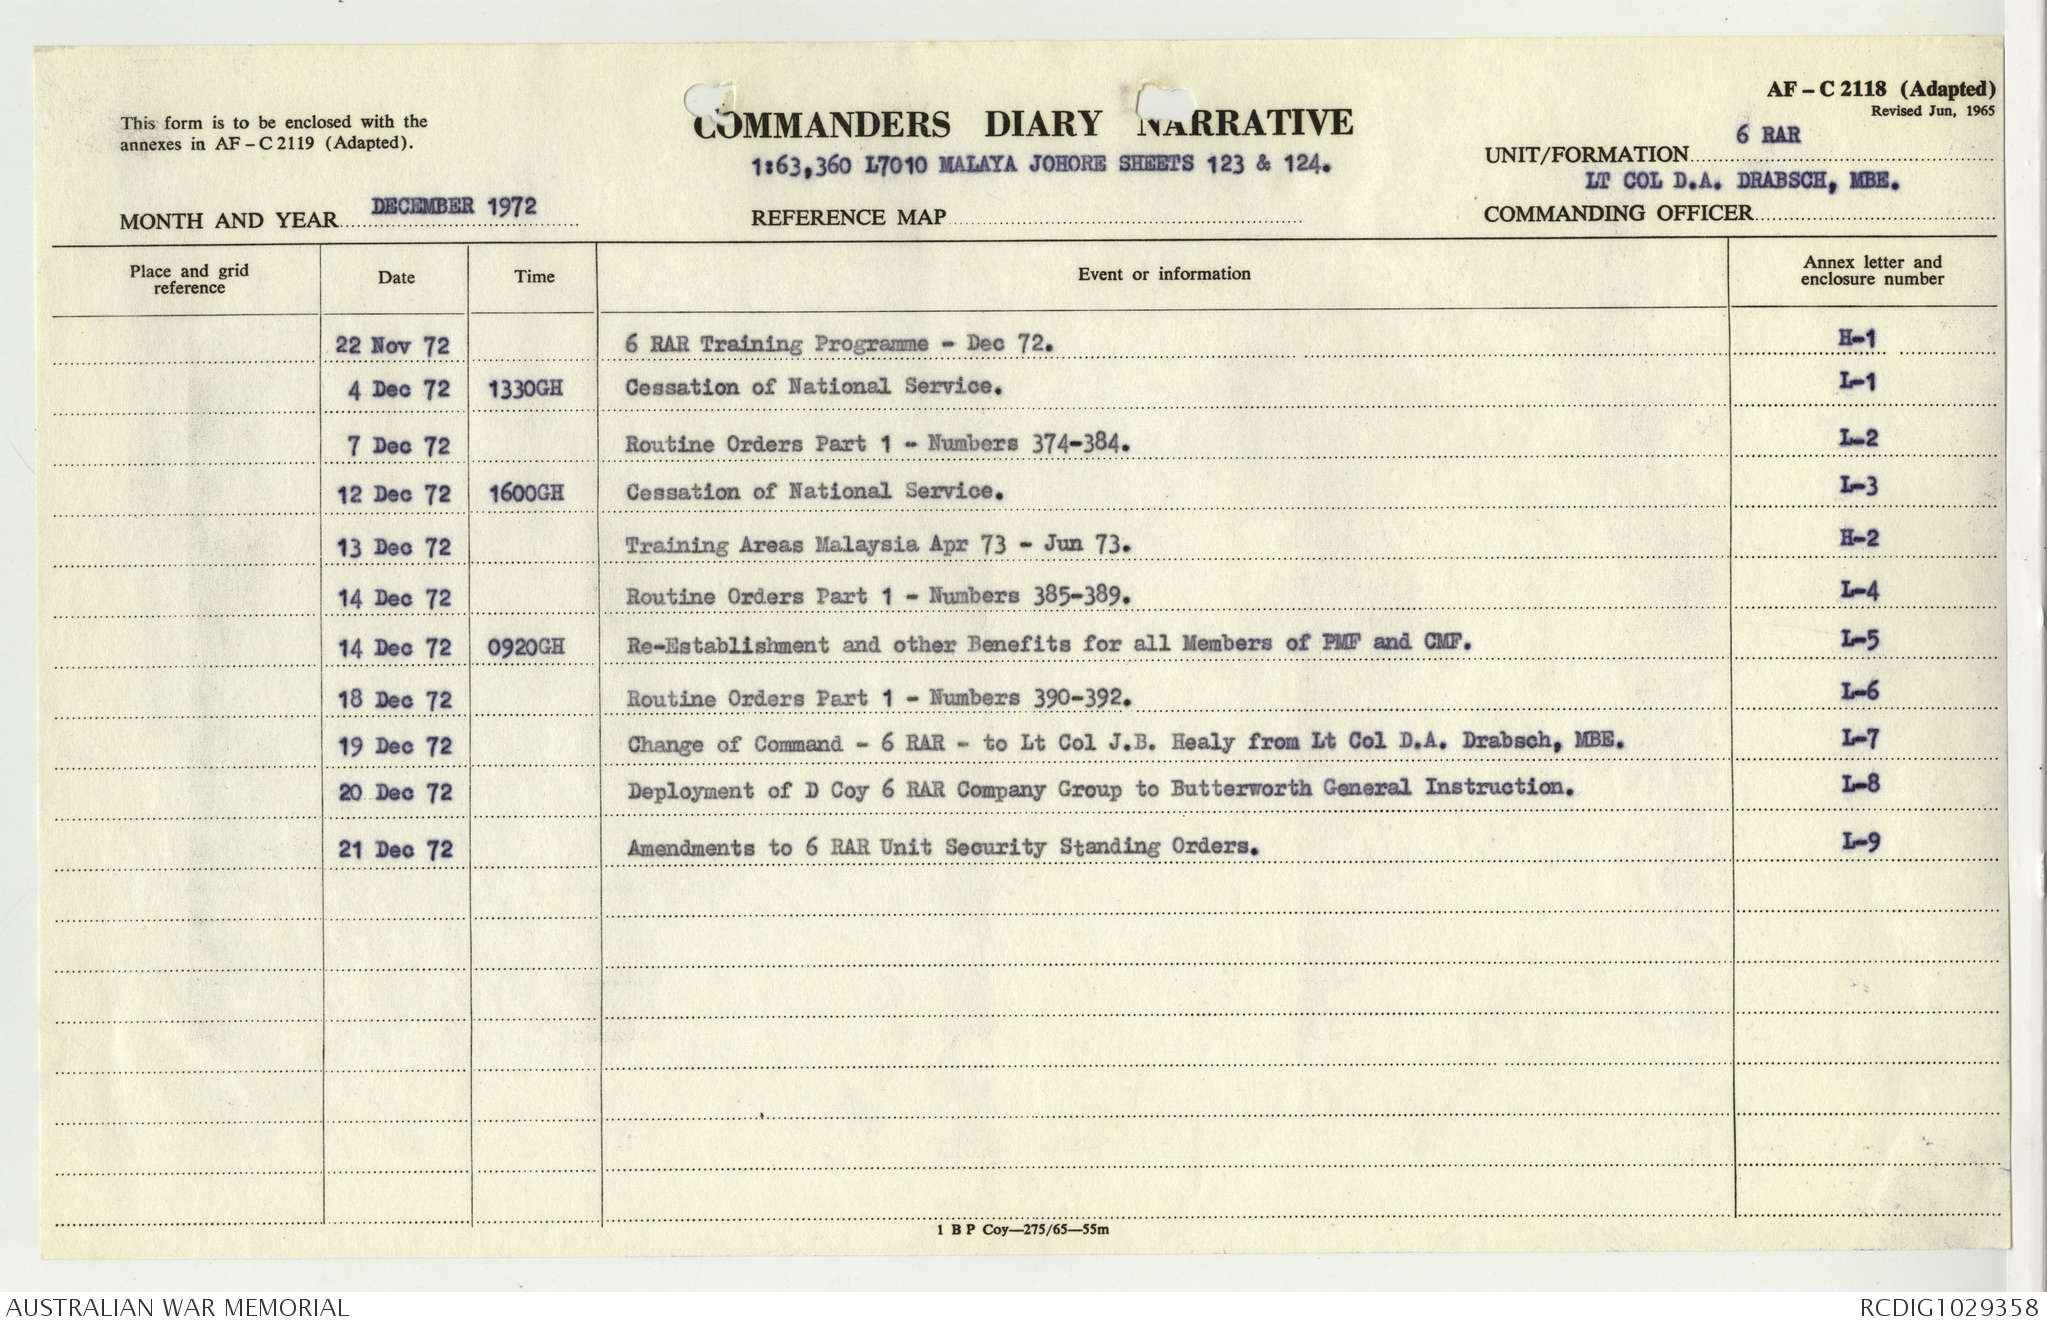 AF – C 2118 (Adapted)
Revised Jun, 1965
This form is to be enclosed with the
annexes in AF – C 2119 (Adapted).
COMMANDERS DIARY NARRATIVE
1:63,360 L7010 MALAYA JOHORE SHEETS 123 & 124.
6 RAR
UNIT/FORMATION
LT COL D.A. DRABSCH, MBE.
MONTH AND YEAR DECEMBER 1972
REFERENCE MAP
COMMANDING OFFICER
Place and grid reference Date Time Event or information Annex letter and enclosure number
22 Nov 72 6 RAR Training Programme - Dec 72. H-1
4 Dec 72 1330GH Cessation of National Service. L-1
7 Dec 72 Routine Orders Part 1 - Numbers 374-384. L-2
12 Dec 72 1600GH Cessation of National Service. L-3
13 Dec 72 Training Areas Malaysia Apr 73 - Jun 73. H-2
14 Dec 72 Routine Orders Part 1 - Numbers 385-389. L-4
14 Dec 72 0920GH Re-Establishment and other Benefits for all Members of PMF and CMF. L-5
18 Dec 72 Routine Orders Part 1 - Numbers 390-392. L-6
19 Dec 72 Change of Command - 6 RAR - to Lt Col J.B. Healy from Lt Col D.A. Drabsch, MBE. L-7
20 Dec 72 Deployment of D Coy 6 RAR Company Group to Butterworth General Instruction. L-8
21 Dec 72 Amendments to 6 RAR Unit Security Standing Orders. L-9
1 B P Coy—275/65—55m
AUSTRALIAN WAR MEMORIAL
RCDIG1029358